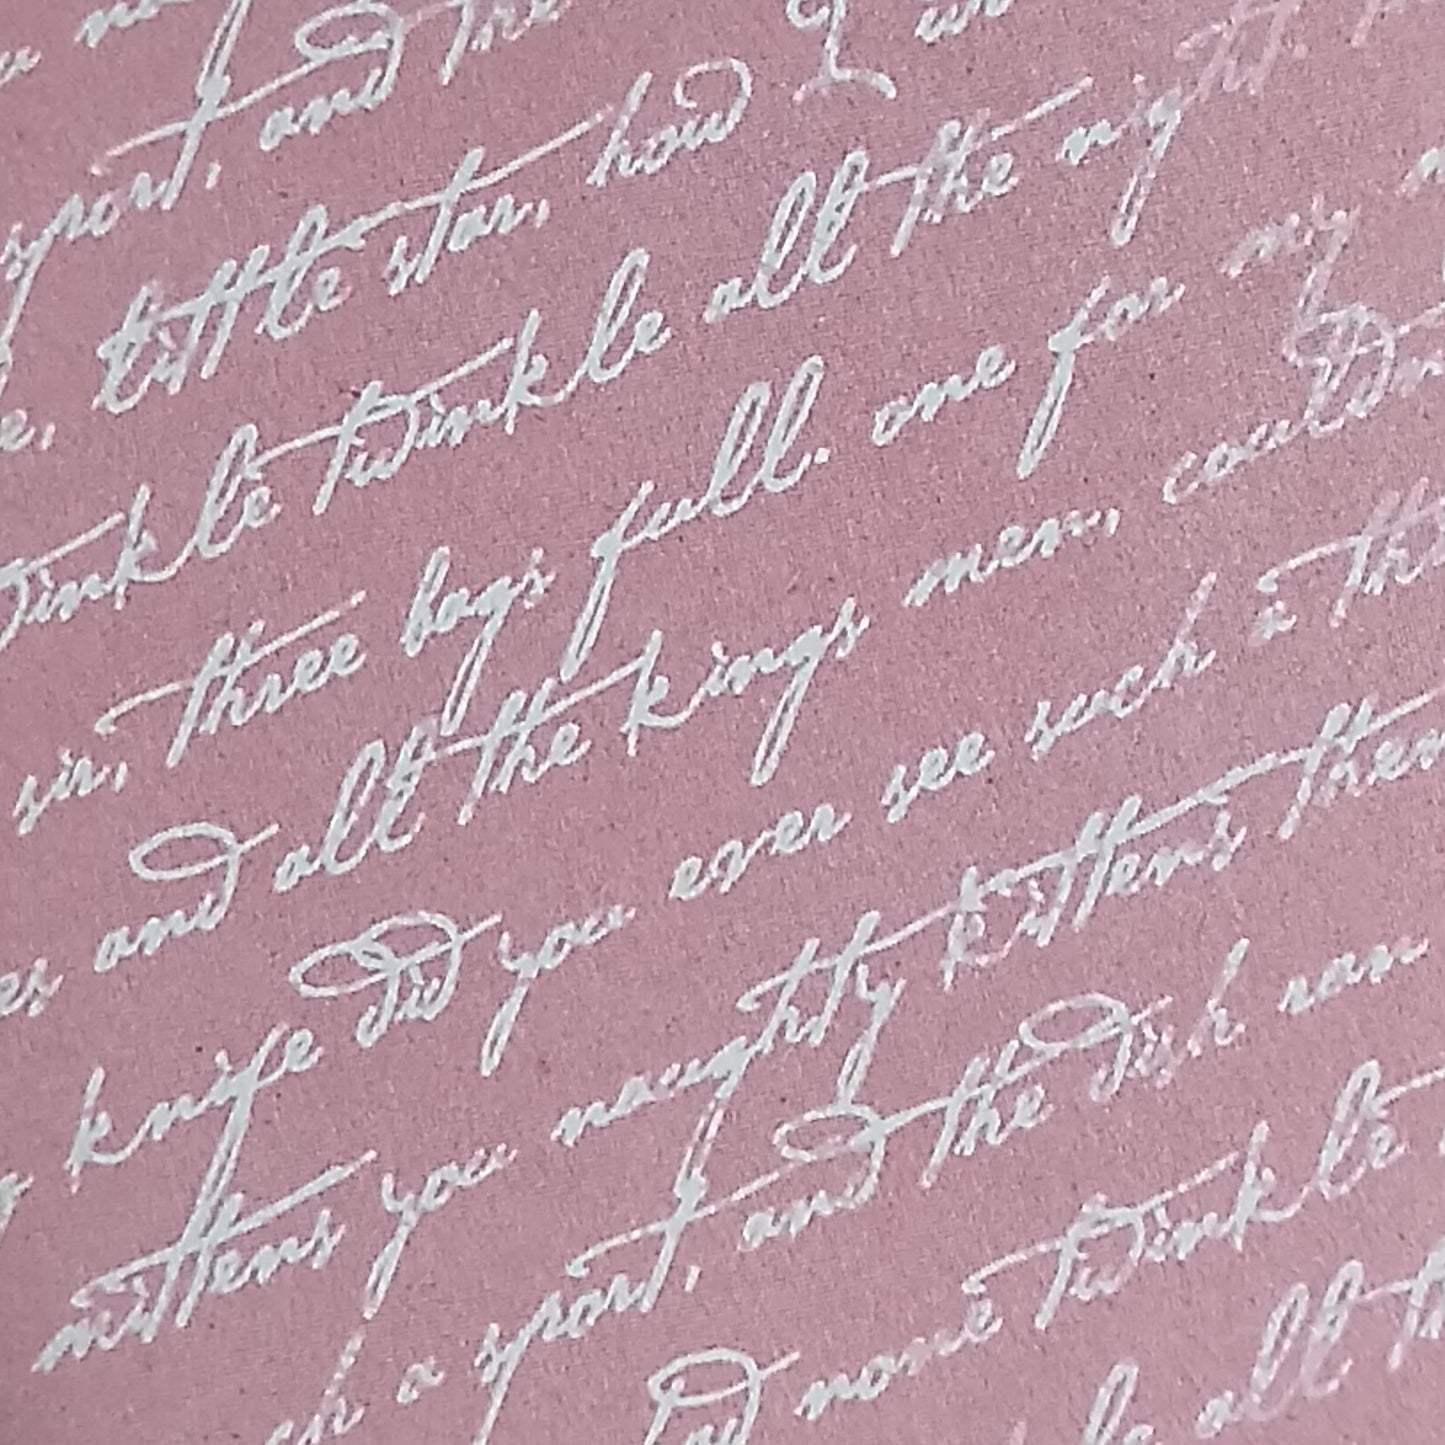 sport, and the
little star, how I
twinkle twinkle all the night
sir, three bags full. one for my
and all the kings men, couldn
knife did you ever see such a thi
mittens you naughty kittens then
a sport, and the dish ran
none twinkle
all